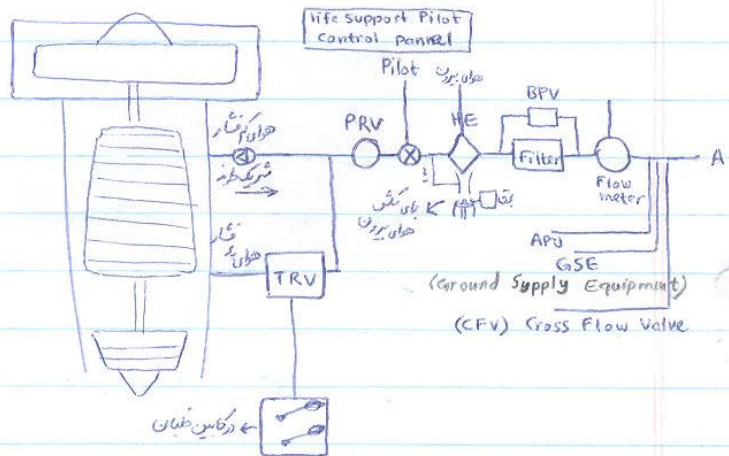 life support Pilot
control pannel
Pilot
هوای بیرون
BPV
PRV
HE
هوای کم فشار
شیر یک طرفه
Filter
Flow
meter
A
برق
هوای بیرون
هوای پر فشار
TRV
APU
GSE
(Ground Supply Equipment)
(CFV) Cross Flow Valve
در کابین خلبان